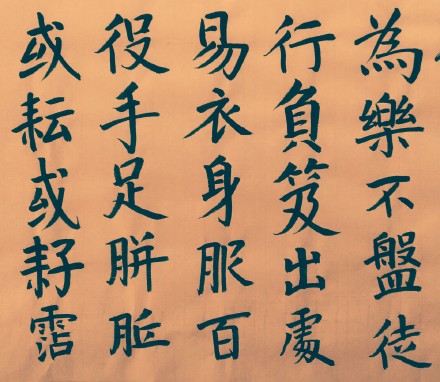 為樂不盤徒
行負笈出處
易衣身服百
役手足胼胝
或耘或耔霑